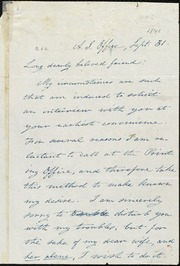 A. S. Office, Sept. 31.
Long dearly beloved friend:
My circumstances are such
that am induced to solicit
an interview with you at
your earliest convenience.
For several reasons I am re-
luctant to call at the
my Office, and therefore take
this method to make known
my desire. I am sincerely
sorry to trouble disturb you
with my troubles, but for
the sake of my dear wife, and
I wish to do it.